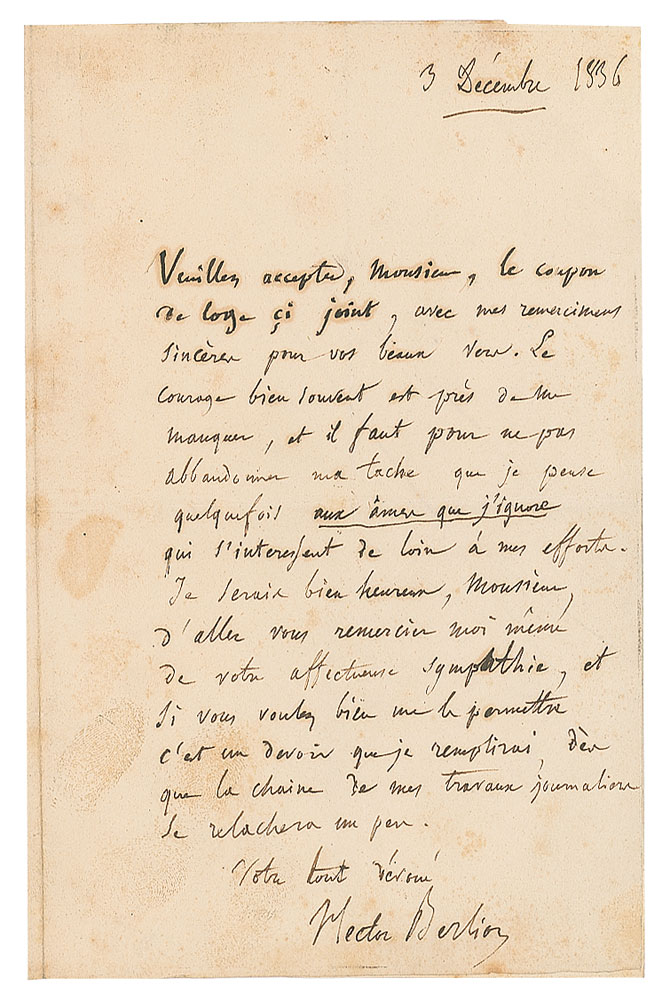 3 Décembre 1836
Veuillez accepter, Monsieur, le coupon
de loge çi joint, avec mes remerciments
sincères pour vos beaux vers. Le
courage bien souvent est près de me
manquer, et il faut pour ne pas
abbandonner ma tache que je pense
quelquefois aux âmes que j'ignore
qui s'interessent de loin à mes efforts.
Je serais bien heureux, Monsieur,
d'aller vous remercier moi même
de votre affectueuse sympathie, et
si vous voulez bien me le permettre
c'est un devoir que je remplirai, dès
que la chaine de mes travaux journaliers
se relachera un peu.
Votre tout dévoué
Hector Berlioz